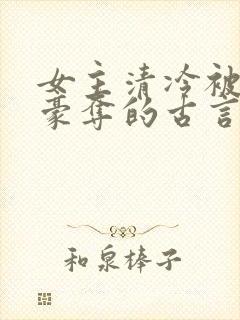 女主清冷被
豪夺的古言
和泉棒子